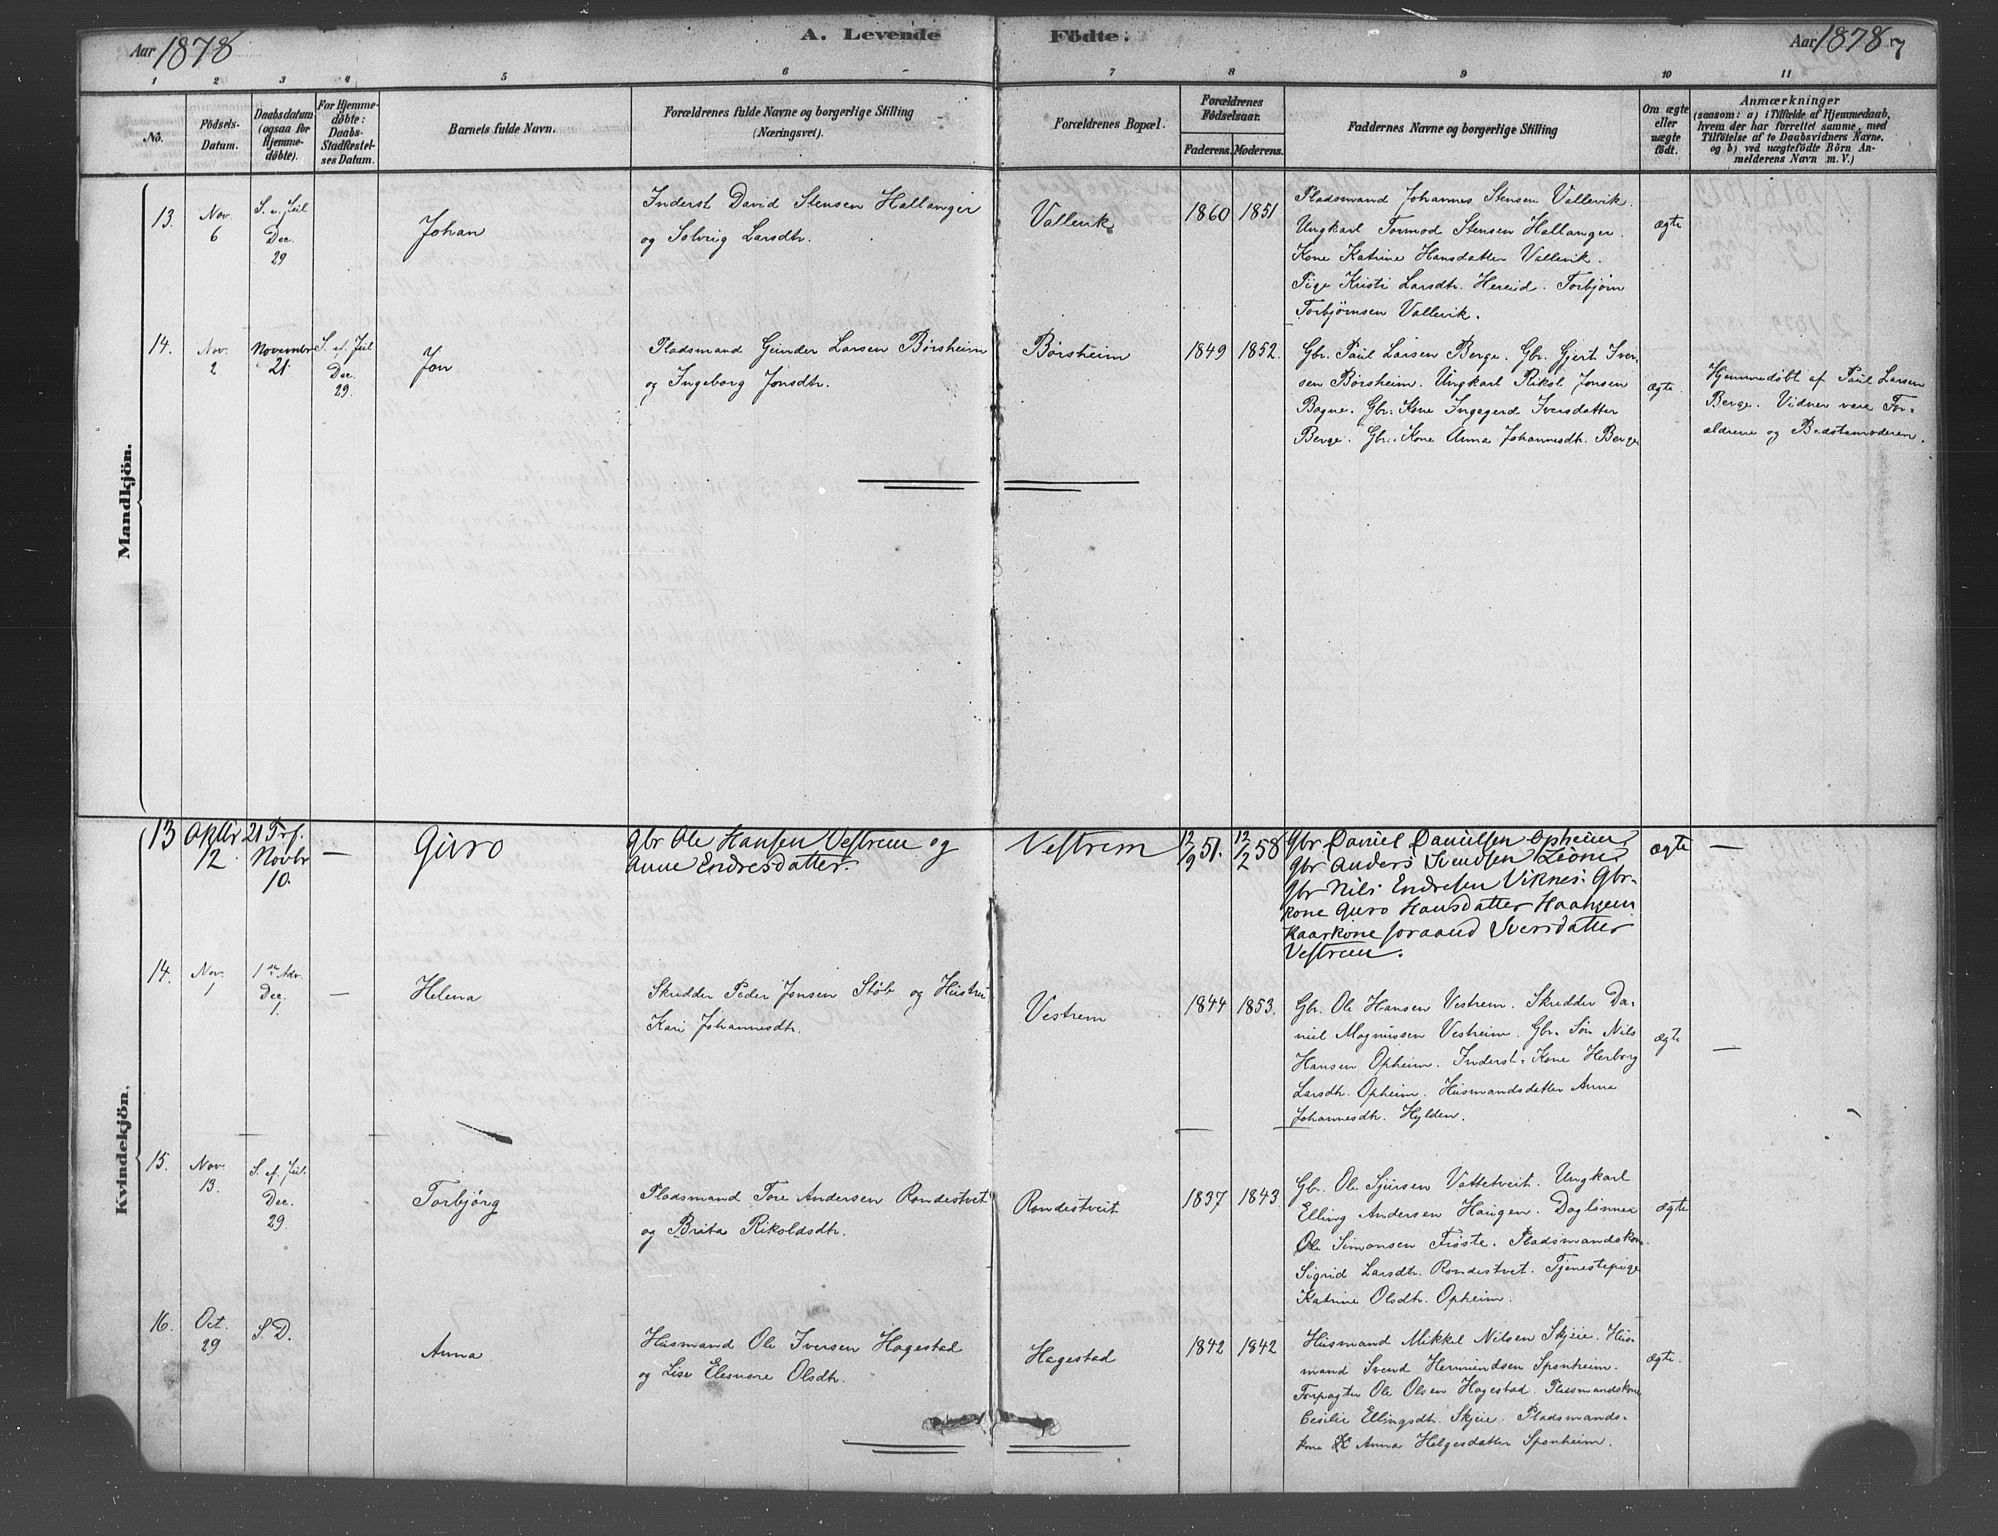 Aar 1878
A. Levende Födte.
Aar 1878 7
1 2 3 4 5 6 7 8 9 10 11
No.
Födsels-
Datum.
Daabsdatum
(ogsaa for
Hjemme-
döbte).
For Hjemme-
döbte:
Daabs-
Stadfæstel-
ses Datum.
Barnets fulde Navn.
Forældrenes fulde Navne og borgerlige Stilling
(Næringsvei).
Forældrenes Bopæl.
Forældrenes
Födselsaar.
Faderens. Moderens.
Faddernes Navne og borgerlige Stilling
Om ægte
eller
uægte
födt.
Anmærkninger
(saasom: a) i Tilfælde af Hjemmedaab,
hvem der har forrettet samme, med
Tilföielse af to Daabsvidners Navne.
og b) ved uægtefödte Börn An-
melderens Navn m. V.)
Mandkjön.
13.
Nov
6
S. e. Jul
Dec.
29
Johan
Inderst David Stensen Hallanger
og Solveig Larsdtr.
Vallevik
1860 1851
Pladsmand Johannes Stensen Vallevik.
Ungkarl Tormod Stensen Hallanger.
Kone Katrine Hansdatter Vallevik.
Pige Kristi Larsdtr. Hereid. Torbjørn
Torbjørnsen Vallevik.
ægte
14.
Nov.
2
Novembr
21.
S. ef. Jul
Dec.
29.
Jon
Pladsmand Gunder Larsen Børsheim
og Ingeborg Jonsdtr.
Børsheim
1849 1852.
Gbr. Paul Larsen Berge. Gbr. Gjert Iver-
sen Børsheim. Ungkarl Rikol Jonsen
Bagne. Gbr. Kone Ingegerd Iversdatter
Berge. Gbr. Kone Anna Johannesdtr. Berge
ægte.
Hjemmedøbt af Paul Larsen
Berge. Vidner vare For-
ældrene og Bedstemoderen.
Kvindekjön.
13
Oktbr
12
21 Trf.
Novbr
10.
—
Guro
Gbr Ole Hansen Vestrem og
Anne Endresdatter.
Vestrem
12/9 51. 12/2 58
Gbr Daniel Danielsen Opheim,
Gbr Anders Svendsen Lione,
Gbr Nils Endresen Viknes. Gbr-
kone Guro Hansdatter Haaheim
Kaarkone Joraand Iversdatter
Vestrem.
ægte
—
14.
Nov.
1
1ste Adv.
Dec.
1
—
Helena
Skrædder Peder Jonsen Støb og Hustru
Kari Johannesdtr.
Vestrem
1844 1853.
Gbr. Ole Hansen Vestrem. Skredder Da-
niel Magnussen Vestreim. Gbr. Søn Nils
Hansen Opheim. Inderst. Kone Herborg
Larsdtr. Opheim. Husmandsdatter Anna
Johannesdtr. Hylden.
ægte
—
15.
Nov.
13
S. ef. Jul.
Dec.
29.
Torbjørg
Pladsmand Tore Andersen Rondestvet
og Brita Rikoldsdtr.
Rondestveit
1837 1843.
Gbr. Ole Sjursen Vattetveit. Ungkarl
Elling Andersen Haugen. Daglønner
Ole Simonsen Frøste. Pladsmandskone
Sigrid Larsdtr. Rondestvet. Tjenestepige
Katrine Olsdtr. Opheim.
ægte
16.
Oct.
29
S. D.
Anna
Husmand Ole Iversen Hagestad
og Lise Elenore Olsdtr.
Hagestad
1842 1842
Husmand Mikkel Nilsen Skjeie. Hus-
mand Svend Hermundsen Sponheim.
Forpagter Ole Olsen Hagestad. Pladsmandskone
Cesilie Ellingsdtr. Skjeie. Pladsmands-
kone Anna Helgesdatter Sponheim.
ægte.